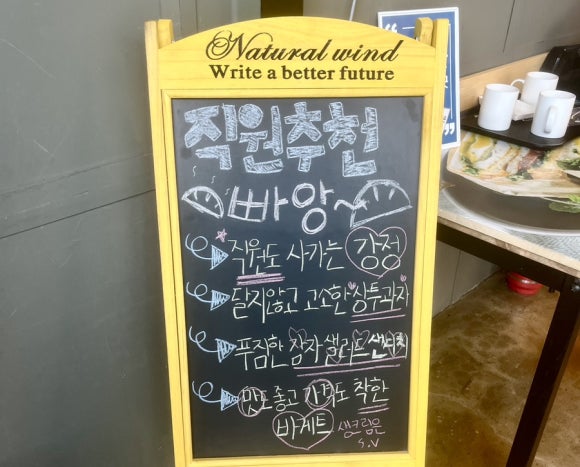 Natural wind
Write a better future
직원추천
빠앙~
직원도 사가는 강정
달지않고 고소한 상투과자
푸짐한 감자 샐러드 샌드위치
맛도 좋고 가격도 착한
바게트 생크림은
S.V